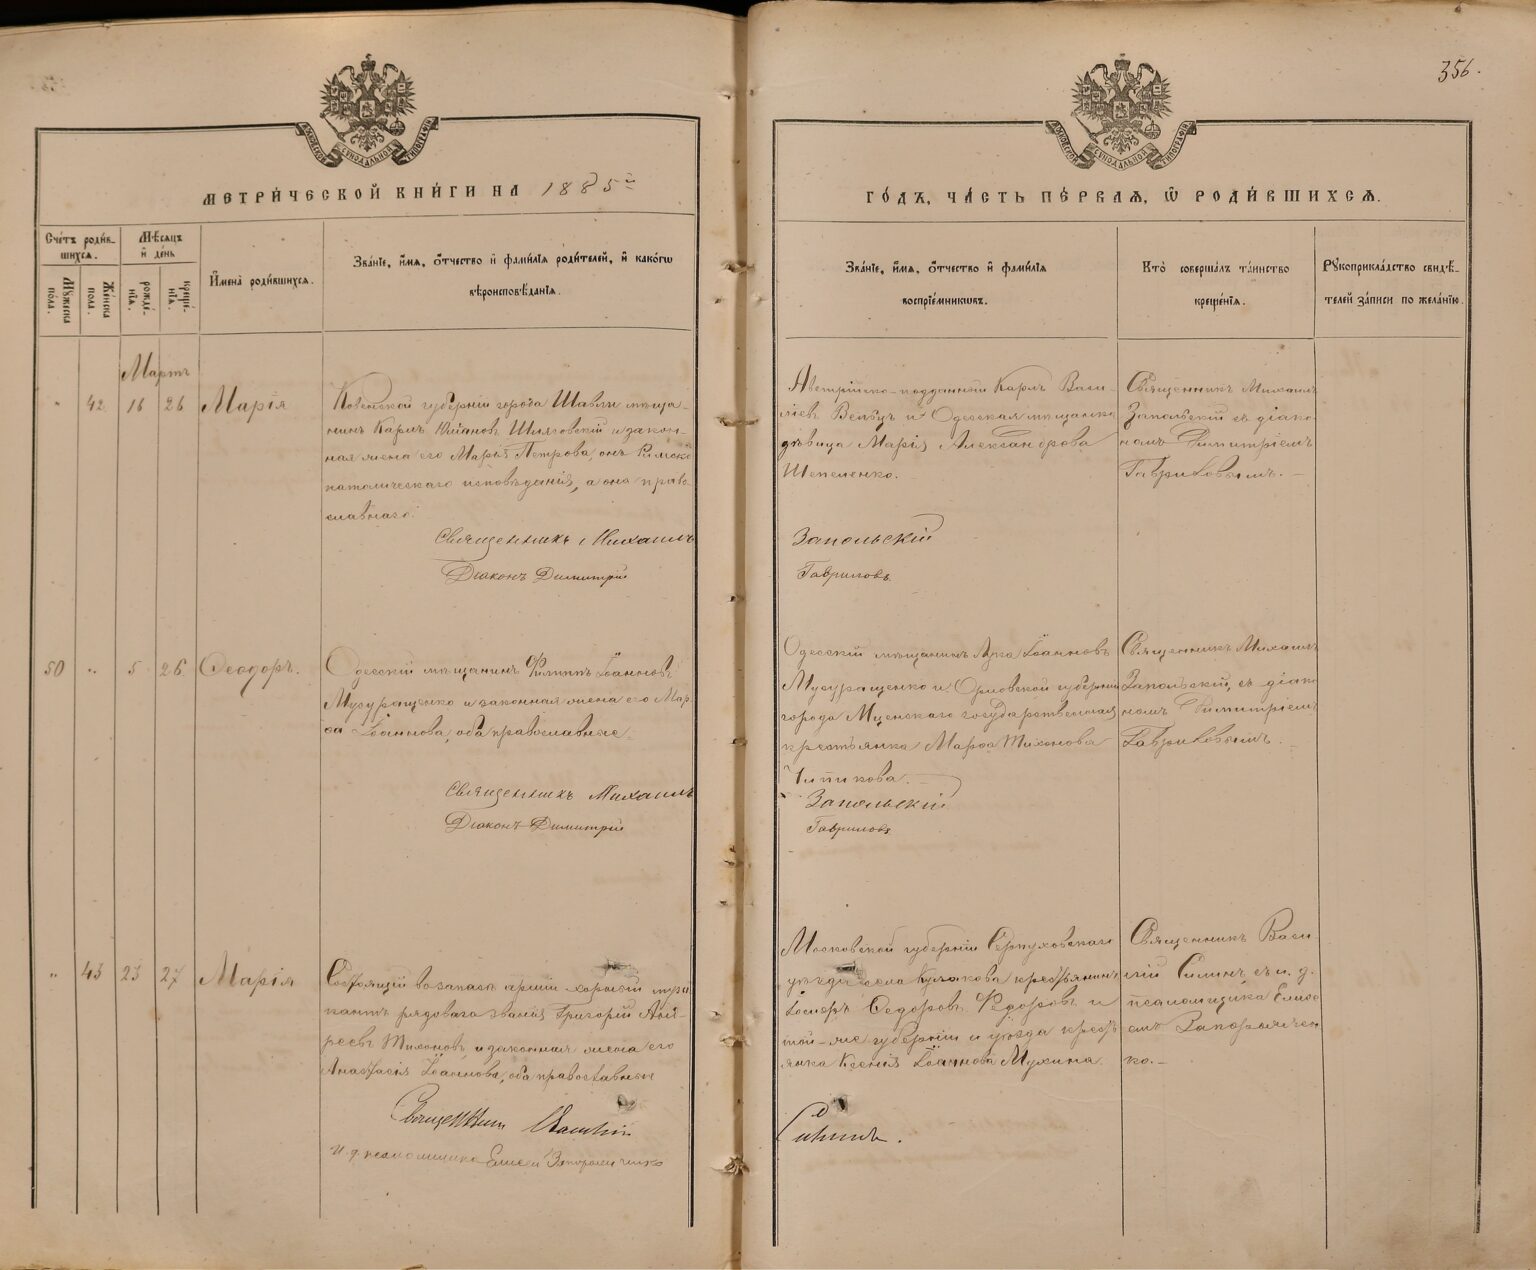 356.
МОСКОВСКОЙ СѴНОДАЛЬНОЙ ТИПОГРАФІИ
МОСКОВСКОЙ СѴНОДАЛЬНОЙ ТИПОГРАФІИ
МЕТРИ́ЧЕСКОЙ КНИ́ГИ НА 1885й
ГО́ДЪ, ЧА́СТЬ ПЕ́РВАѦ, Ѡ РОДИ́ВШИХСѦ.
Сче́тъ роди́в-
шихсѧ.
Мꙋжеска по́ла.
Же́нска по́ла.
Мѣ́сѧцъ
и҆ де́нь
рожде́-
нїѧ.
креще́-
нїѧ.
И҆мена̀ роди́вшихсѧ.
Зва́нїе, и҆́мѧ, ѻ҆́тчество и҆ фами́лїѧ роди́телей, и҆ како́гѡ
вѣроисповѣ́данїѧ.
Зва́нїе, и҆́мѧ, ѻ҆́тчество и҆ фами́лїѧ
воспрїе́мникѡвъ.
Кто̀ соверша́лъ та́инство
креще́нїѧ.
Рꙋкоприкла́дство свидѣ́-
телей за́писи по жела́нїю.
Мартъ
" 42 16 26 Марія
Ковенской губерніи города Шавли мѣща-
нинъ Карлъ Шлясовскій и закон-
ная жена его Марія Петрова, онъ Римско
католическаго исповѣданія, а она право-
славнаго.
Священникъ Михаилъ
Діаконъ Димитрій
Австрійско-подданный Карлъ Васи-
ліевъ Вельцъ и Одесская мѣщанка
дѣвица Марія Александрова
Шепеленко.
Запольскій
Гавриловъ
Священникъ Михаилъ
Запольскій съ діако-
номъ Димитріемъ
Гавриловымъ.
50 " 5 26 Ѳеодоръ.
Одесскій мѣщанинъ Филиппъ Іоанновъ
Мусуращенко и законная жена его Мар-
ѳа Іоаннова, оба православные.
Священникъ Михаилъ
Діаконъ Димитрій
Одесскій мѣщанинъ Лука Іоанновъ
Мусуращенко и Орловской губерніи
города Мценскаго государственная
крестьянка Марѳа Тихонова
Запольскій
Гавриловъ
Священникъ Михаилъ
Запольскій, съ діако
номъ Димитріемъ
Гавриловымъ.
" 43 23 27 Марія
Состоящій въ запасѣ арміи хорный музы
кантъ рядоваго званія Григорій Анд-
реевъ Тихоновъ и законная жена его
Анастасія Іоаннова, оба православные
Священникъ Василій
и. д. псаломщика Елисей
Московской губерніи Серпуховскаго
уѣзда села крестьянинъ
Ѳедоровъ и
той-же губерніи и уѣзда кресть
янка Ксенія Іоаннова Мухина.
Силинъ.
Священникъ Васи
лій Силинъ съ и. д.
псаломщика Елисе
емъ
ко.-